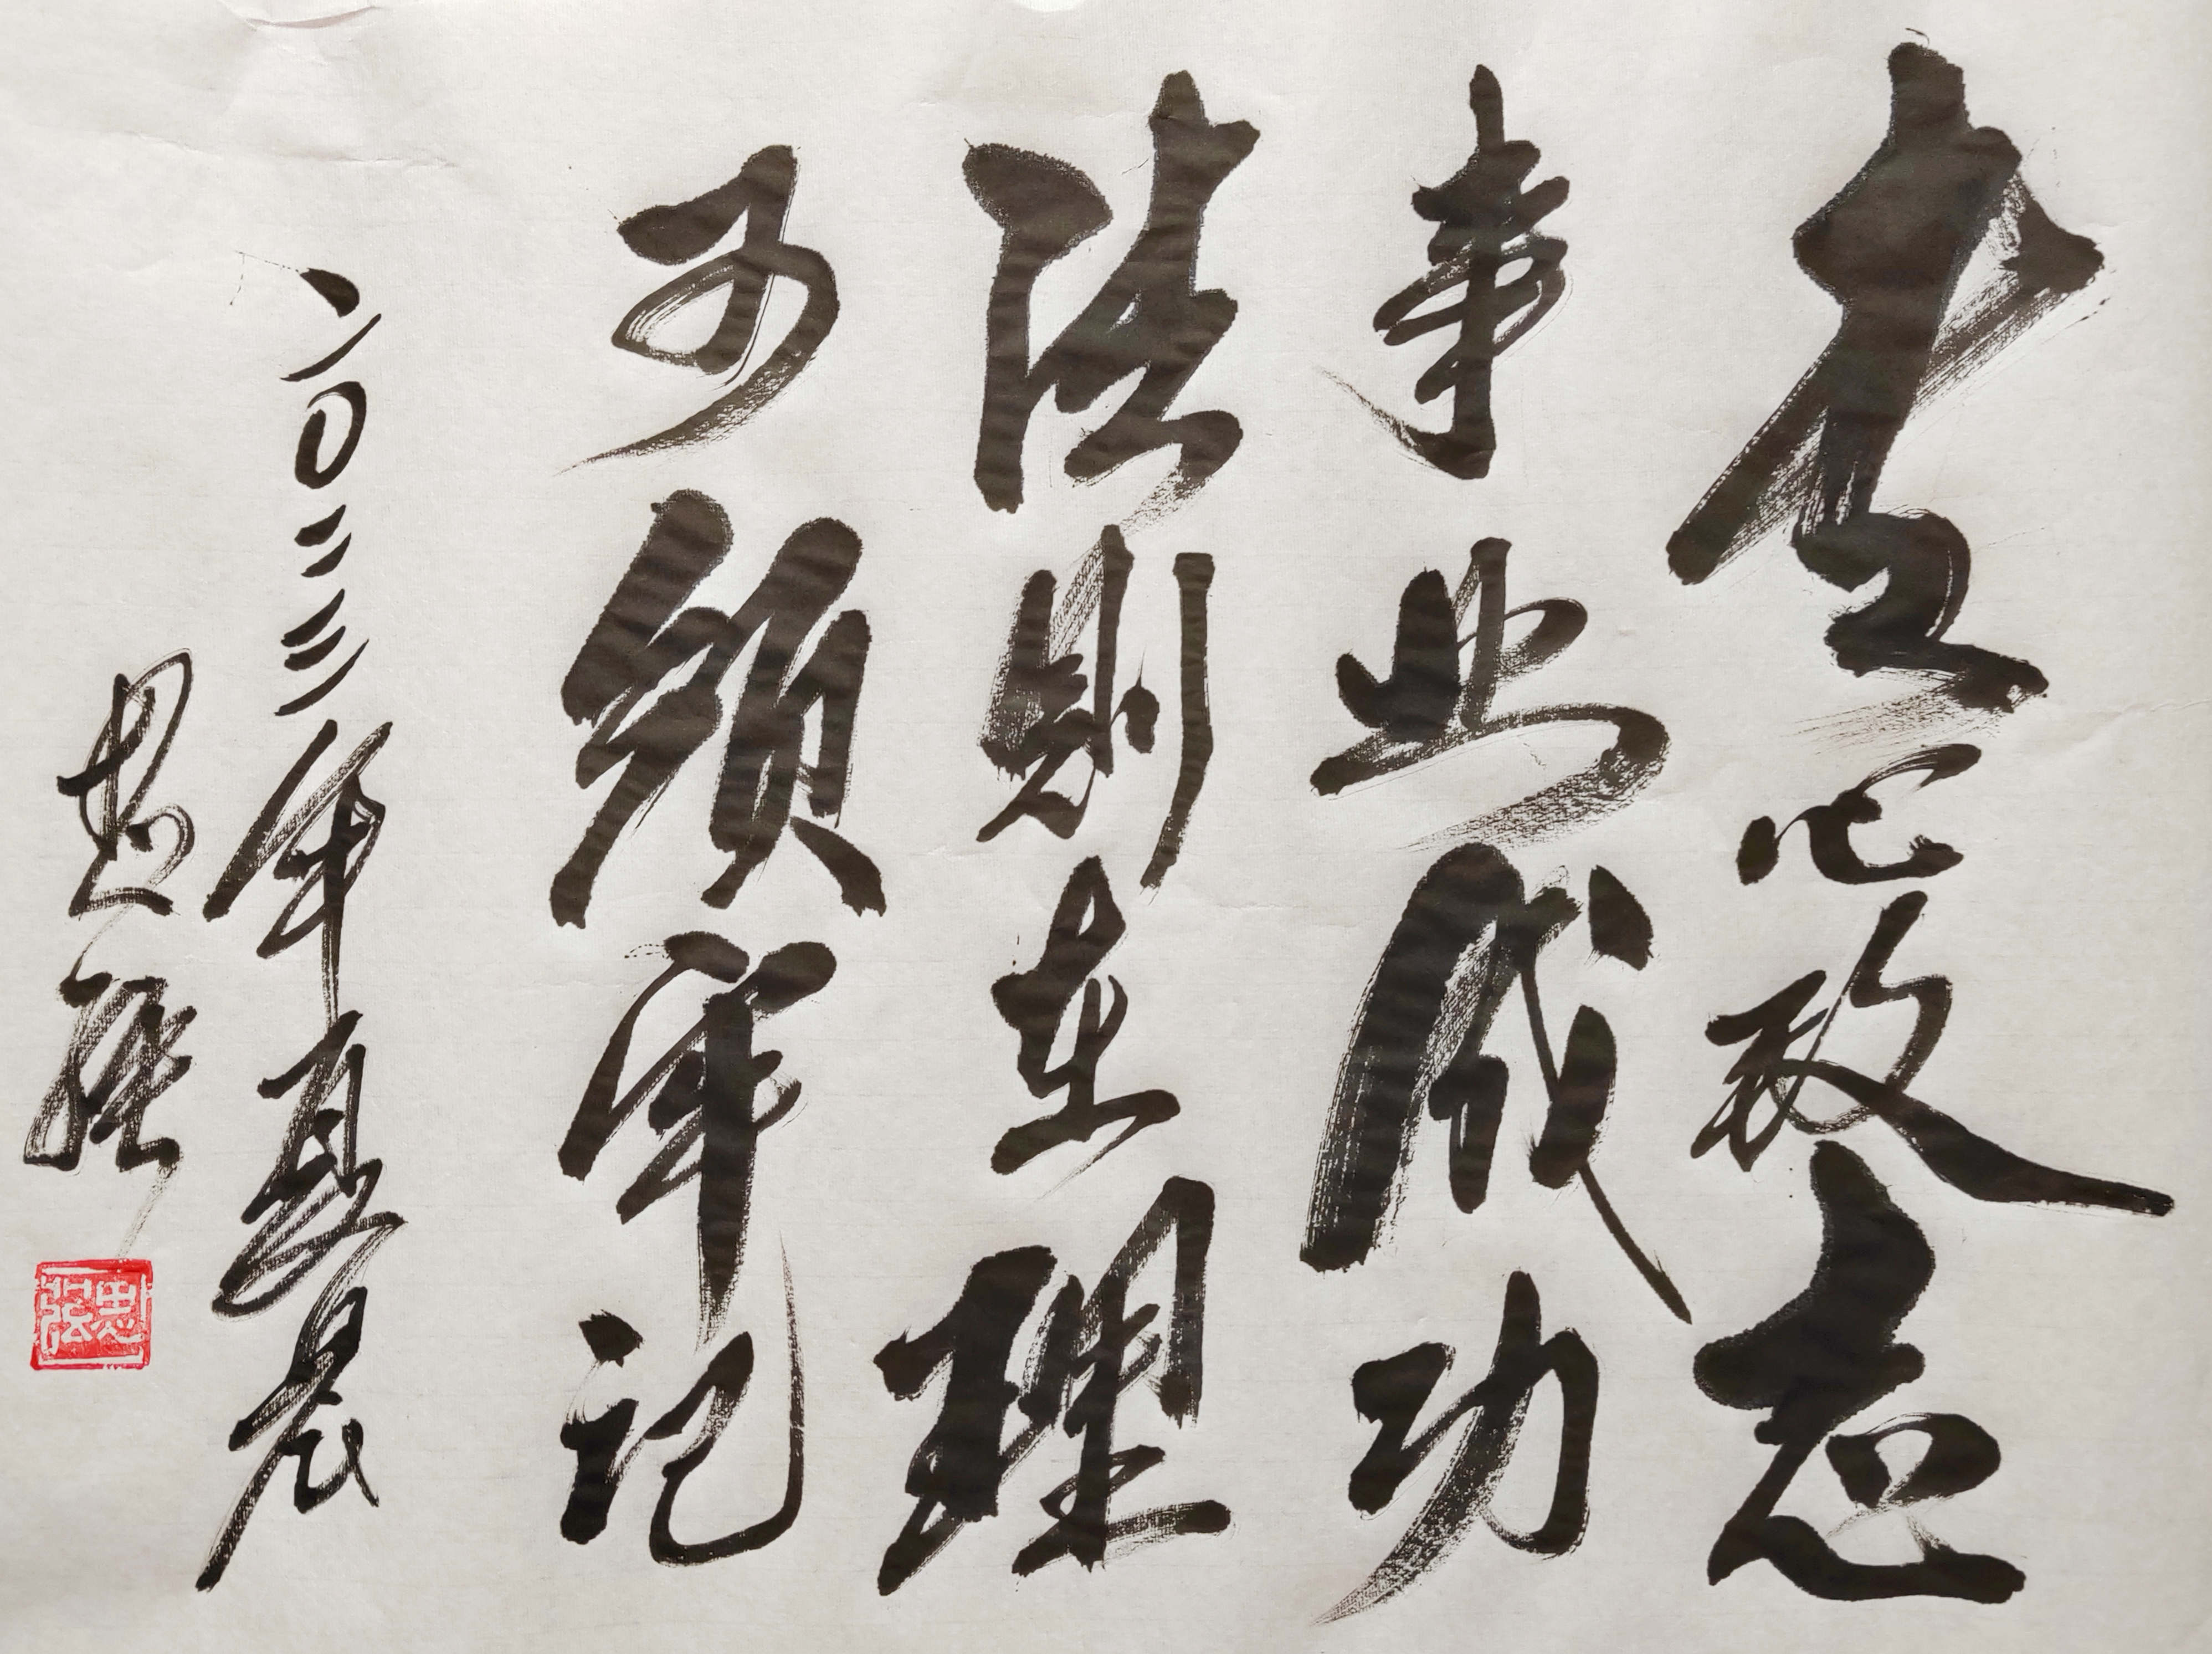 专心致志
事业成功
法则在理
务须牢记
二〇二三年夏晨